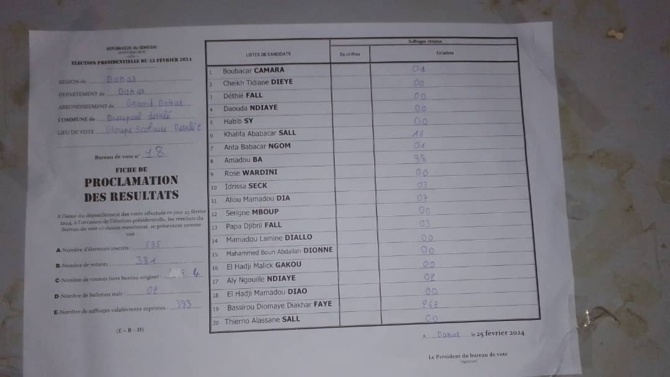 REPUBLIQUE DU SENEGAL
ELECTION PRESIDENTIELLE DU 25 FÉVRIER 2024
REGION de Dakar
DEPARTEMENT de Dakar
ARRONDISSEMENT de Grand Dakar
COMMUNE de
LIEU DE VOTE Groupe Scolaire
Bureau de vote n° 18
FICHE DE
PROCLAMATION
DES RESULTATS
A l'issue du dépouillement des votes effectués ce jour 25 février
2024, à l'occasion de l'élection présidentielle, les résultats du
bureau de vote ci-dessus mentionné, se présentent comme
suit
A-Nombre d'électeurs inscrits
B-Nombre de votants
C-Nombre de votants hors bureau originel
D-Nombre de bulletins nuls
E-Nombre de suffrages valablement exprimés
(E = B - D)
LISTES DE CANDIDATS
Suffrages obtenus
En chiffres
1 Boubacar CAMARA 01
2 Cheikh Tidiane DIEYE 00
3 Déthié FALL 00
4 Daouda NDIAYE 00
5 Habib SY 00
6 Khalifa Ababacar SALL
7 Anta Babacar NGOM 01
8 Amadou BA
9 Rose WARDINI 00
10 Idrissa SECK 03
11 Aliou Mamadou DIA 07
12 Serigne MBOUP 00
13 Papa Djibril FALL 03
14 Mamadou Lamine DIALLO 00
15 Mohammed Boun Abdallah DIONNE 00
16 El Hadji Malick GAKOU 00
17 Aly Ngouille NDIAYE
18 El Hadji Mamadou DIAO 00
19 Bassirou Diomaye Diakhar FAYE
20 Thierno Alassane SALL 00
A Dakar le 25 février 2024
Le Président du bureau de vote